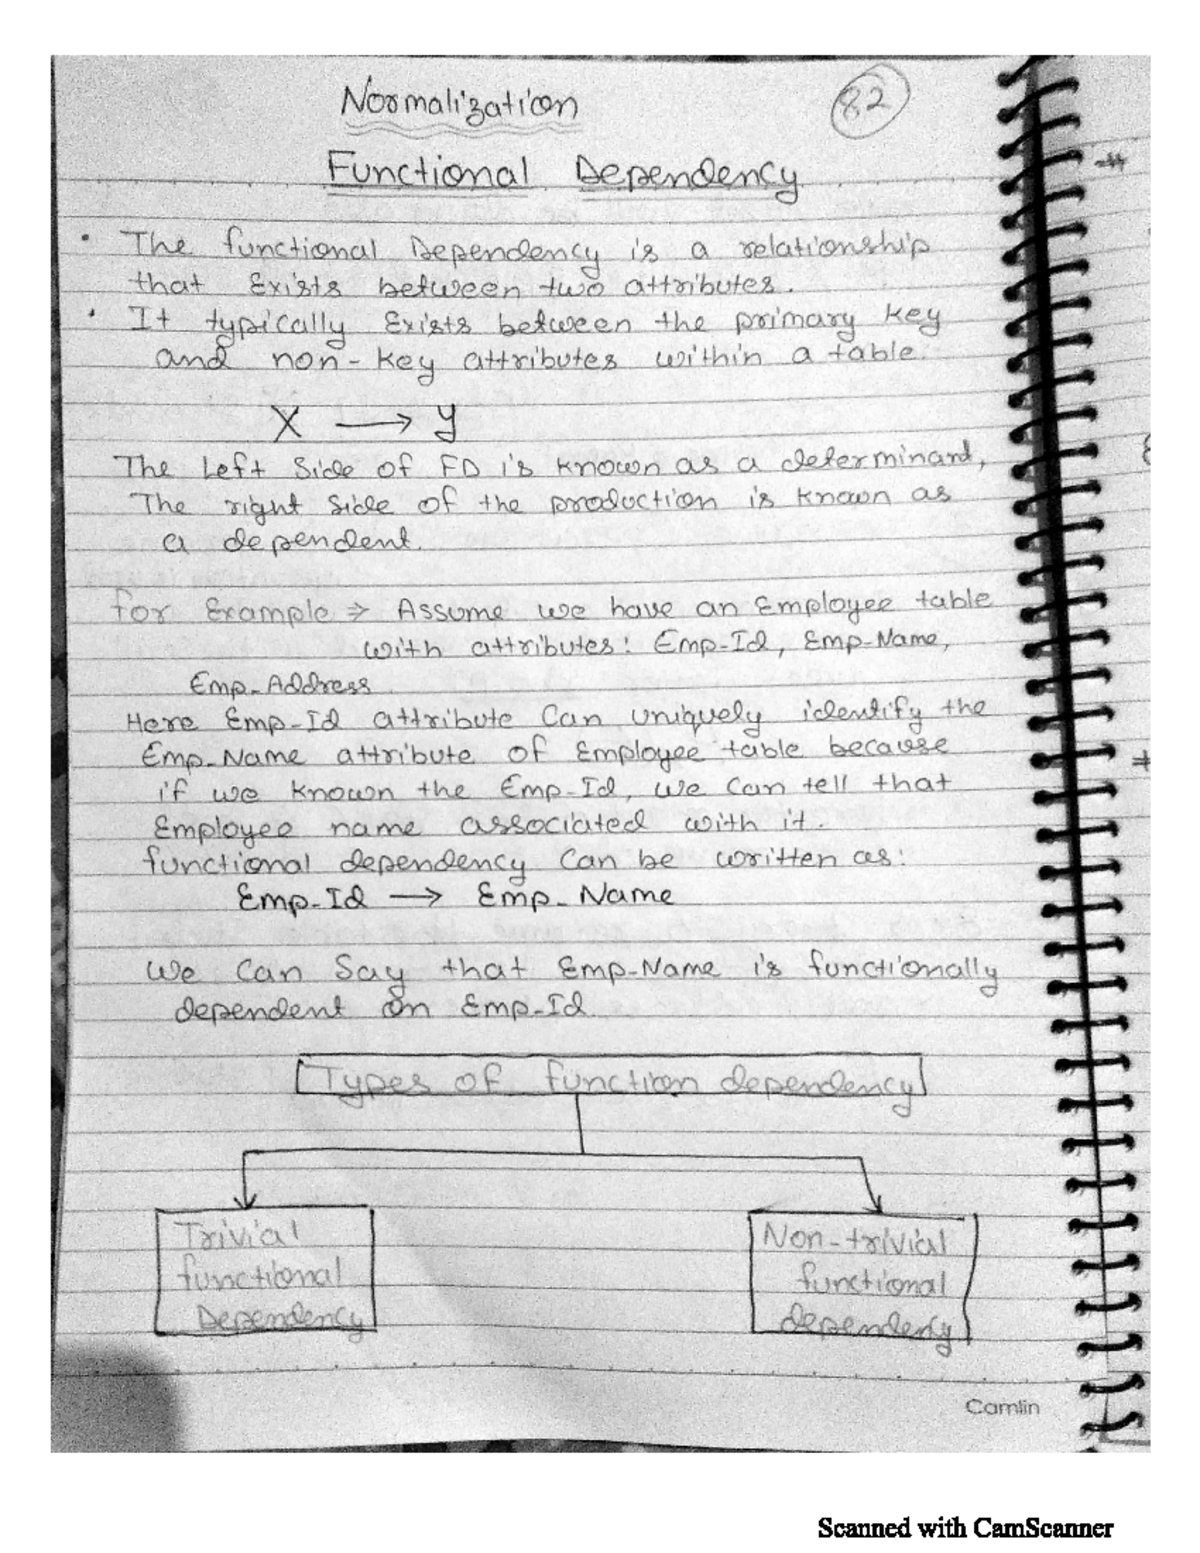 Normalization
82
Functional Dependency
• The functional Dependency is a relationship
that Exists between two attributes.
• It typically Exists between the primary key
and non-key attributes within a table.
X → y
The Left Side of FD is known as a determinant,
The right side of the production is known as
a dependent.
for Example ⇒ Assume we have an Employee table
with attributes: Emp-Id, Emp-Name,
Emp-Address
Here Emp-Id attribute Can uniquely identify the
Emp-Name attribute of Employee table because
if we known the Emp-Id, we can tell that
Employee name associated with it.
functional dependency Can be written as:
Emp-Id → Emp-Name
We Can Say that Emp-Name is functionally
dependent on Emp-Id
Types of function dependency
Trivial
functional
Dependency
Non-trivial
functional
dependency
Camlin
Scanned with CamScanner